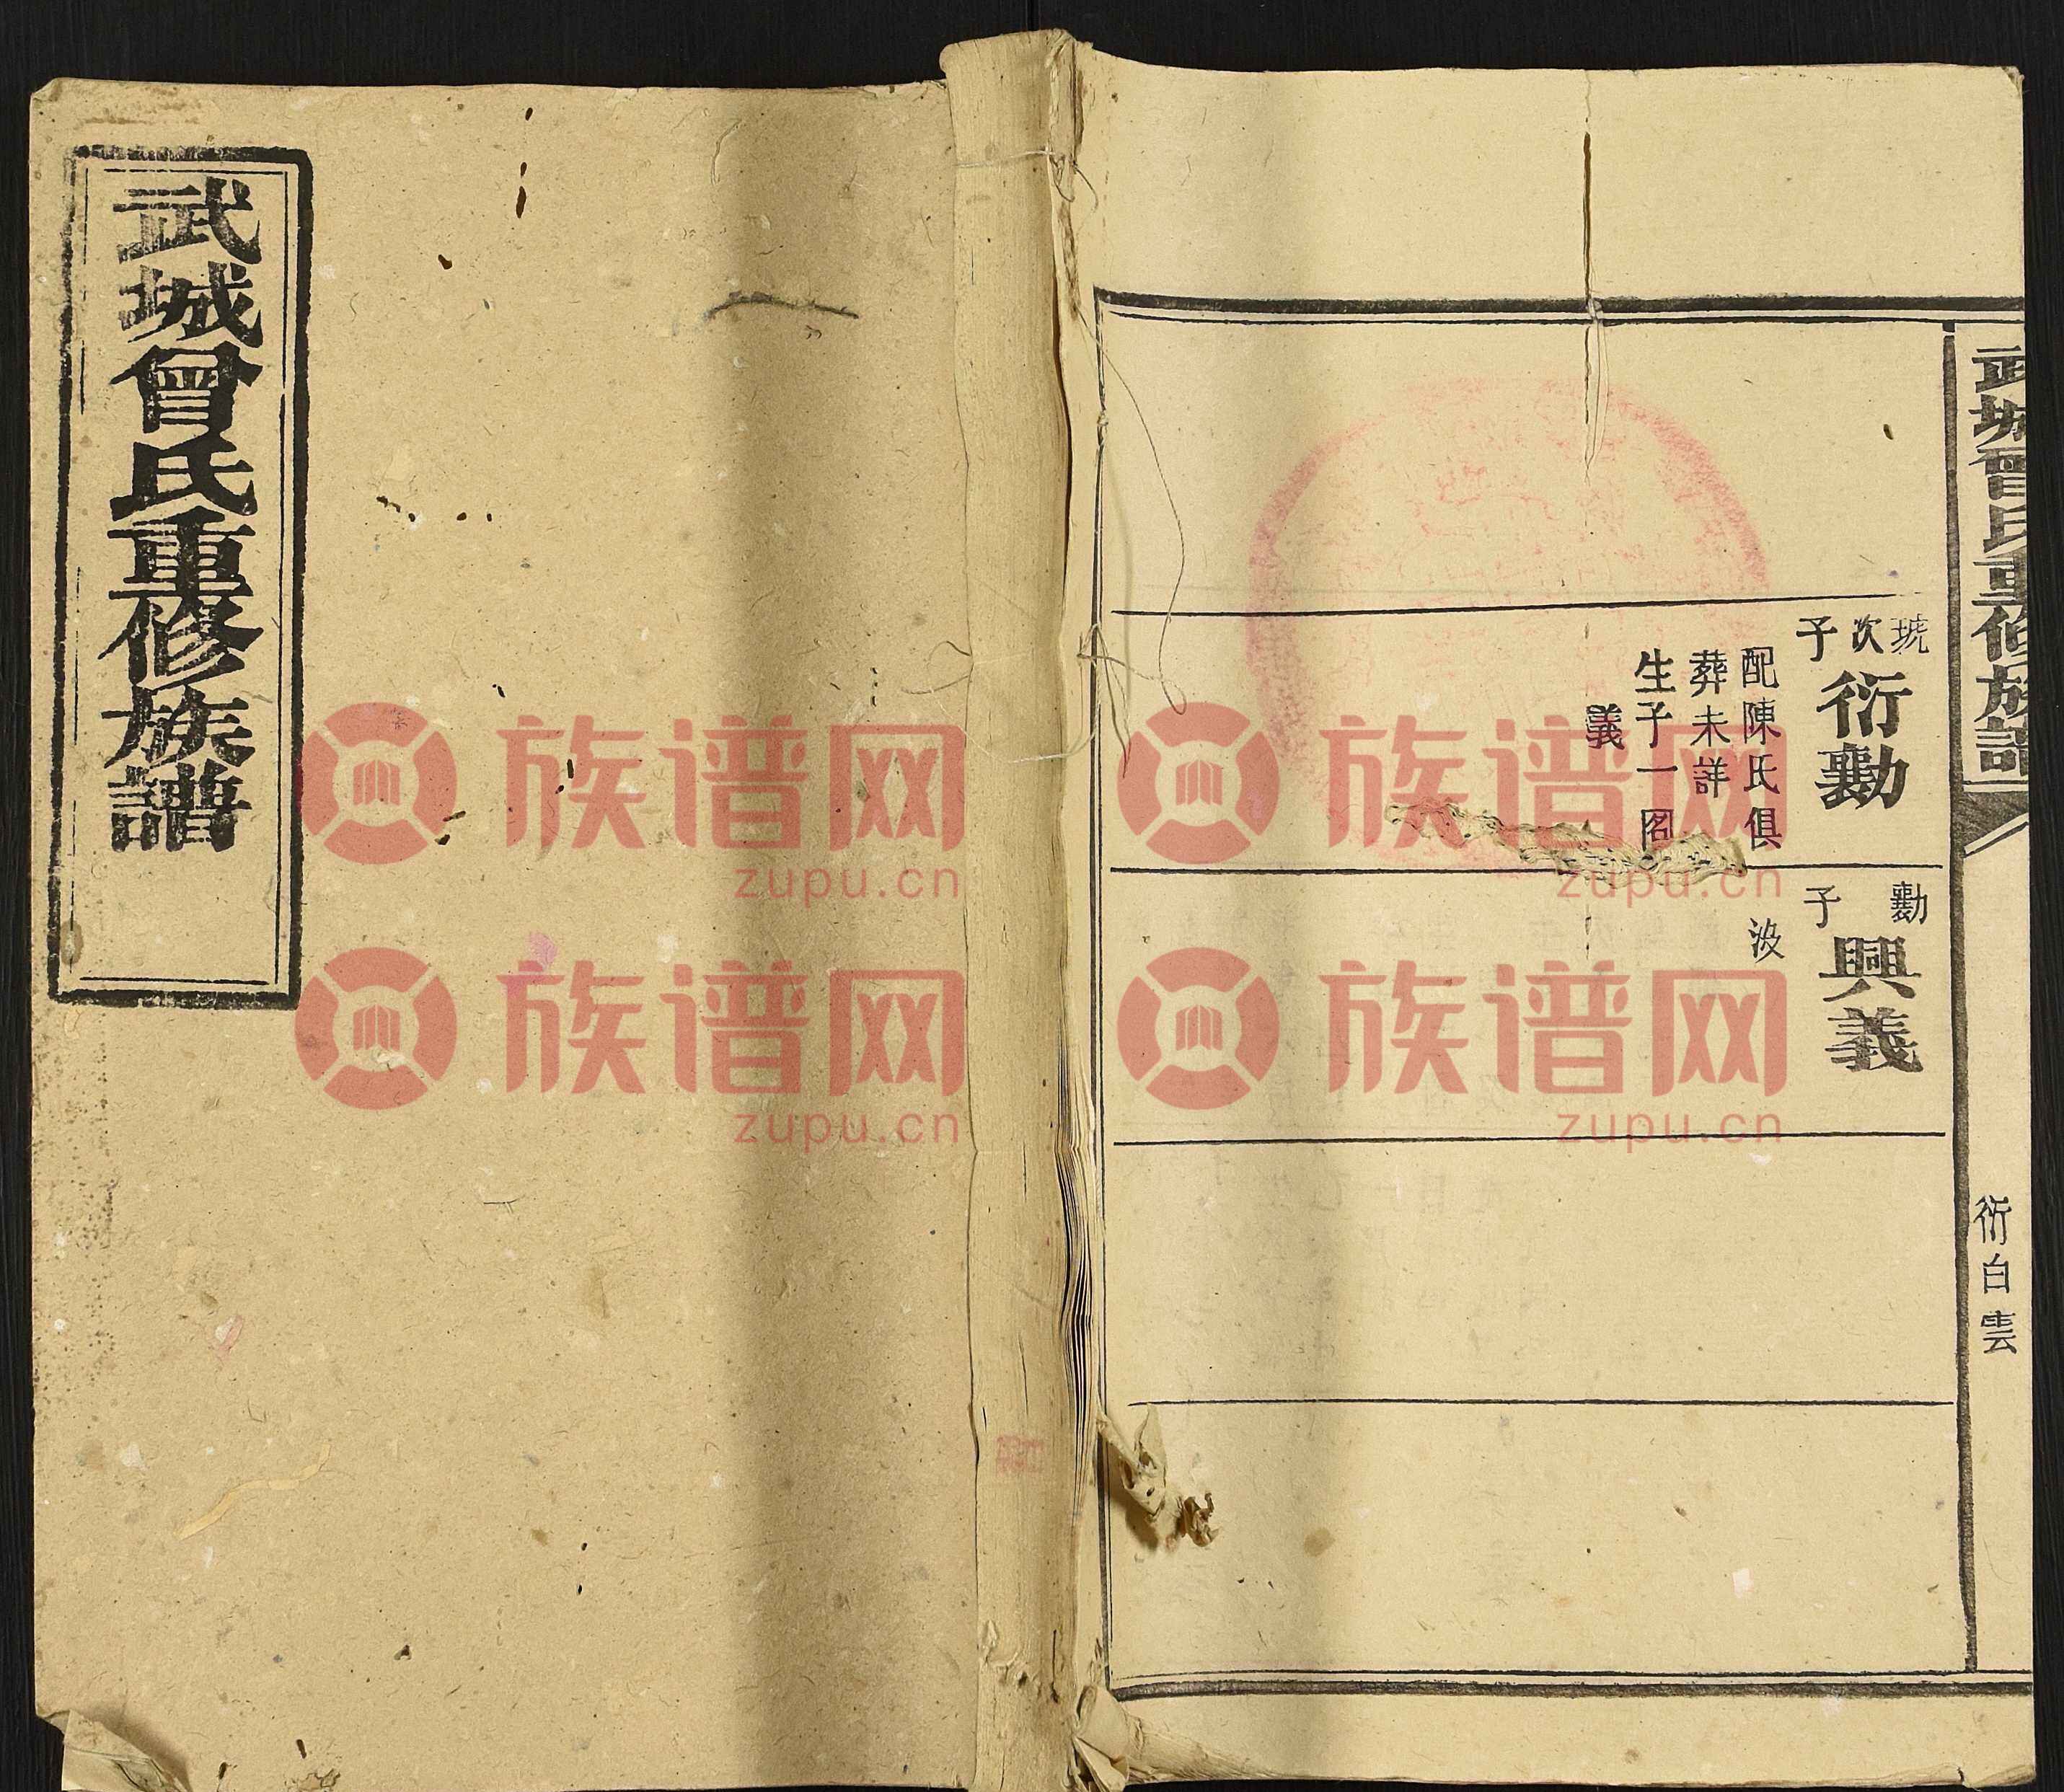 武城曾氏重修族譜
武城曾氏重修族譜
衍白雲
琥次子
衍勷
配陳氏俱
葬未詳
生子一名
義
勷子
興義
沒
族谱网
zupu.cn
族谱网
zupu.cn
族谱网
zupu.cn
族谱网
zupu.cn